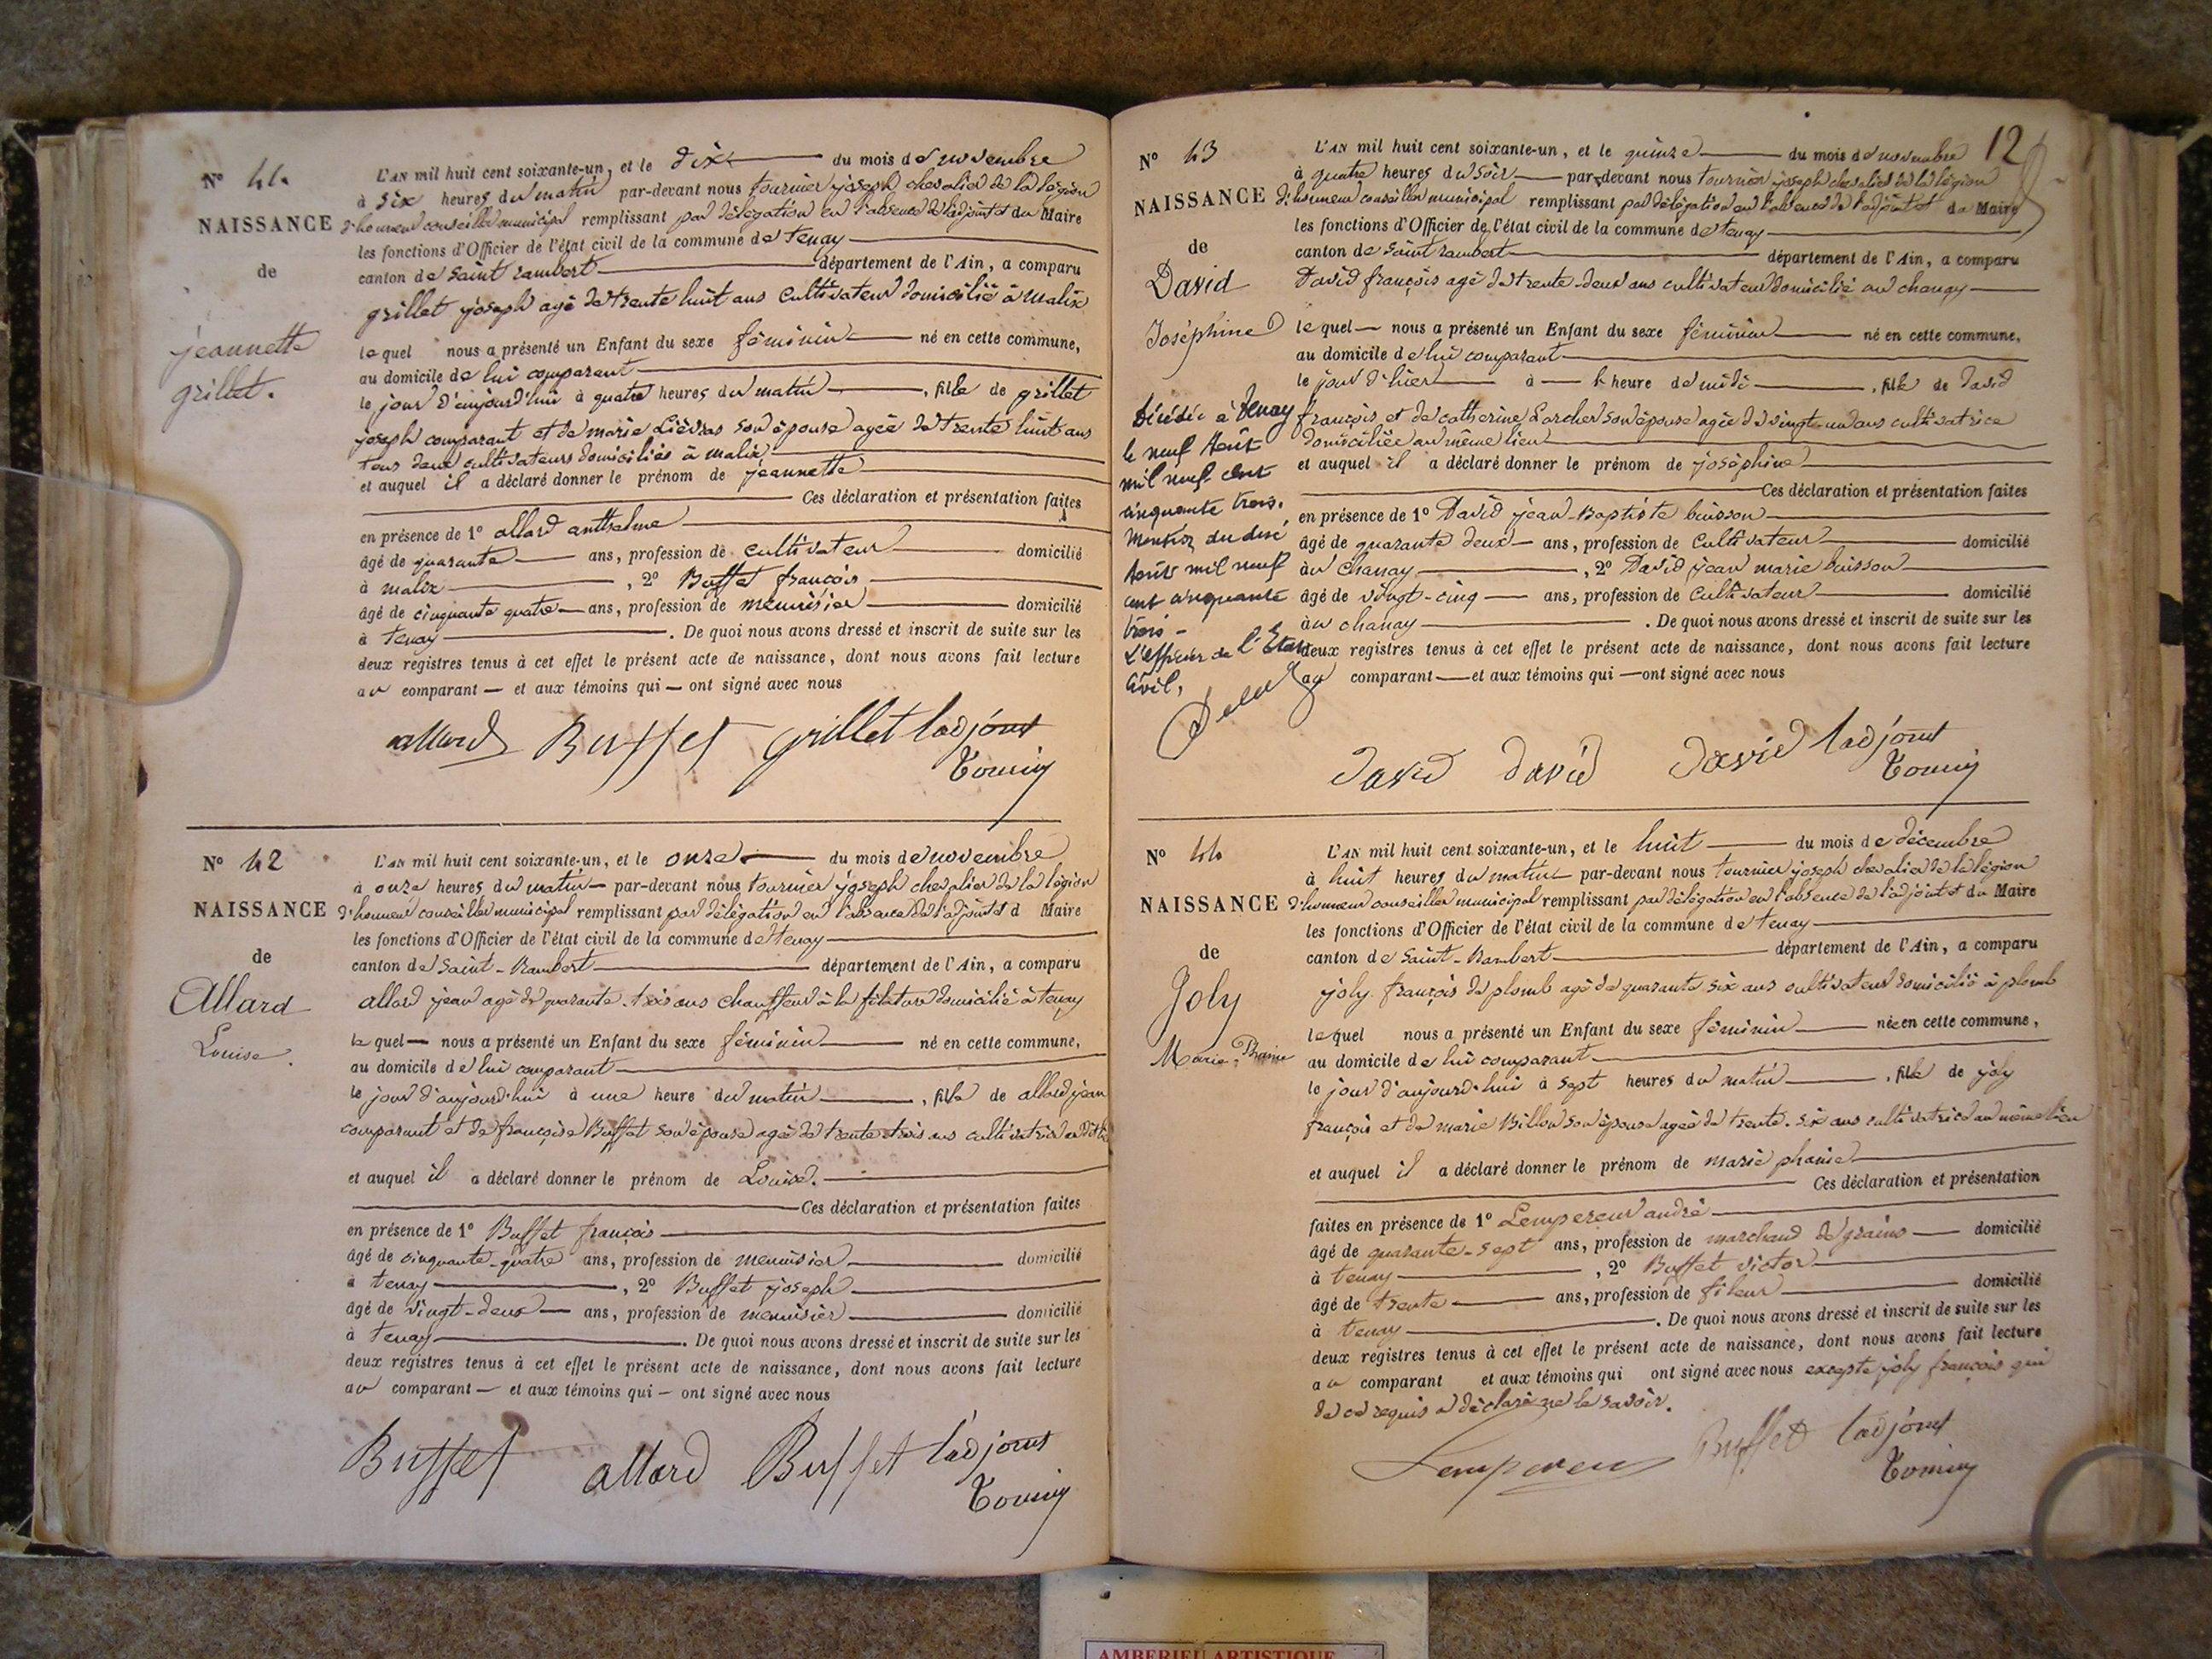 N° 41.
NAISSANCE
de
jeannette
grillet.
L'AN mil huit cent soixante-un, et le dix du mois de novembre
à six heures du matin par-devant nous tournier joseph chevalier de la légion
d'honneur conseiller municipal remplissant par délégation en l'absence de l'adjoint et du Maire
les fonctions d'Officier de l'état civil de la commune de tenay
canton de Saint rambert département de l'Ain, a comparu
grillet joseph agé de trente huit ans cultivateur domicilié à malix
lequel nous a présenté un Enfant du sexe féminin né en cette commune,
au domicile de lui comparant
le jour d'aujourd'hui à quatre heures du matin, fille de grillet
joseph comparant et de marie son épouse agée de trente huit ans
tous deux cultivateurs domiciliés à malix
et auquel il a déclaré donner le prénom de jeannette
Ces déclaration et présentation faites
en présence de 1° allard anthelme
âgé de quarante ans, profession de cultivateur domicilié
à malix, 2° Buffet françois
âgé de cinquante quatre ans, profession de menuisier domicilié
à tenay. De quoi nous avons dressé et inscrit de suite sur les
deux registres tenus à cet effet le présent acte de naissance, dont nous avons fait lecture
au comparant et aux témoins qui ont signé avec nous
allard Buffet grillet ladjoint
N° 42
NAISSANCE
de
Allard
Louise.
L'AN mil huit cent soixante-un, et le onze du mois de novembre
à onze heures du matin par-devant nous tournier joseph chevalier de la légion
d'honneur conseiller municipal remplissant par délégation en l'absence de l'adjoint et d Maire
les fonctions d'Officier de l'état civil de la commune de tenay
canton de Saint-Rambert département de l'Ain, a comparu
allard jean agé de quarante-trois ans chauffeur à la filature domicilié à tenay
lequel nous a présenté un Enfant du sexe féminin né en cette commune,
au domicile de lui comparant
le jour d'aujourd'hui à une heure du matin, fille de allard jean
comparant et de françoise Buffet son épouse agée de trente trois ans cultivatrice
et auquel il a déclaré donner le prénom de Louise.
Ces déclaration et présentation faites
en présence de 1° Buffet françois
âgé de cinquante-quatre ans, profession de menuisier domicilié
à tenay, 2° Buffet joseph
âgé de vingt-deux ans, profession de menuisier domicilié
à tenay. De quoi nous avons dressé et inscrit de suite sur les
deux registres tenus à cet effet le présent acte de naissance, dont nous avons fait lecture
au comparant et aux témoins qui ont signé avec nous
Buffet allard Buffet ladjoint
12
N° 43
NAISSANCE
de
David
Joséphine
Décédée à Tenay
le neuf Août
mil neuf cent
cinquante trois.
Mention du dix
Août mil neuf
cent cinquante
trois -
L'officier de l'Etat
Civil,
L'AN mil huit cent soixante-un, et le quinze du mois de novembre
à quatre heures du soir par-devant nous tournier joseph chevalier de la légion
d'honneur conseiller municipal remplissant par délégation en l'absence de l'adjoint et du Maire
les fonctions d'Officier de l'état civil de la commune de tenay
canton de Saint rambert département de l'Ain, a comparu
David françois agé de trente-deux ans cultivateur domicilié au chanay
lequel nous a présenté un Enfant du sexe féminin né en cette commune,
au domicile de lui comparant
le jour d'hier à heure de midi, fille de David
françois et de catherine Larcher son épouse agée de vingt-un ans cultivatrice
domiciliée au même lieu
et auquel il a déclaré donner le prénom de joséphine
Ces déclaration et présentation faites
en présence de 1° David jean-Baptiste buisson
âgé de quarante deux ans, profession de cultivateur domicilié
au chanay, 2° David jean marie buisson
âgé de vingt-cinq ans, profession de cultivateur domicilié
au chanay. De quoi nous avons dressé et inscrit de suite sur les
deux registres tenus à cet effet le présent acte de naissance, dont nous avons fait lecture
au comparant et aux témoins qui ont signé avec nous
David David David ladjoint
N° 44
NAISSANCE
de
Joly
Marie-Phanie
L'AN mil huit cent soixante-un, et le huit du mois de décembre
à huit heures du matin par-devant nous tournier joseph chevalier de la légion
d'honneur conseiller municipal remplissant par délégation en l'absence de l'adjoint et du Maire
les fonctions d'Officier de l'état civil de la commune de tenay
canton de Saint-Rambert département de l'Ain, a comparu
joly françois de plomb agé de quarante six ans cultivateur domicilié à plomb
lequel nous a présenté un Enfant du sexe féminin née en cette commune,
au domicile de lui comparant
le jour d'aujourd'hui à sept heures du matin, fille de joly
françois et de marie Billon son épouse agée de trente-six ans cultivatrice au même lieu
et auquel il a déclaré donner le prénom de marie phanie
Ces déclaration et présentation
faites en présence de 1° Lempereur andré
âgé de quarante-sept ans, profession de marchand de grains domicilié
à tenay, 2° Buffet victor
âgé de trente ans, profession de fileur domicilié
à tenay. De quoi nous avons dressé et inscrit de suite sur les
deux registres tenus à cet effet le présent acte de naissance, dont nous avons fait lecture
au comparant et aux témoins qui ont signé avec nous excepté joly françois qui
de ce requis a déclaré ne le savoir.
Lempereur Buffet ladjoint
AMBERIEU ARTISTIQUE